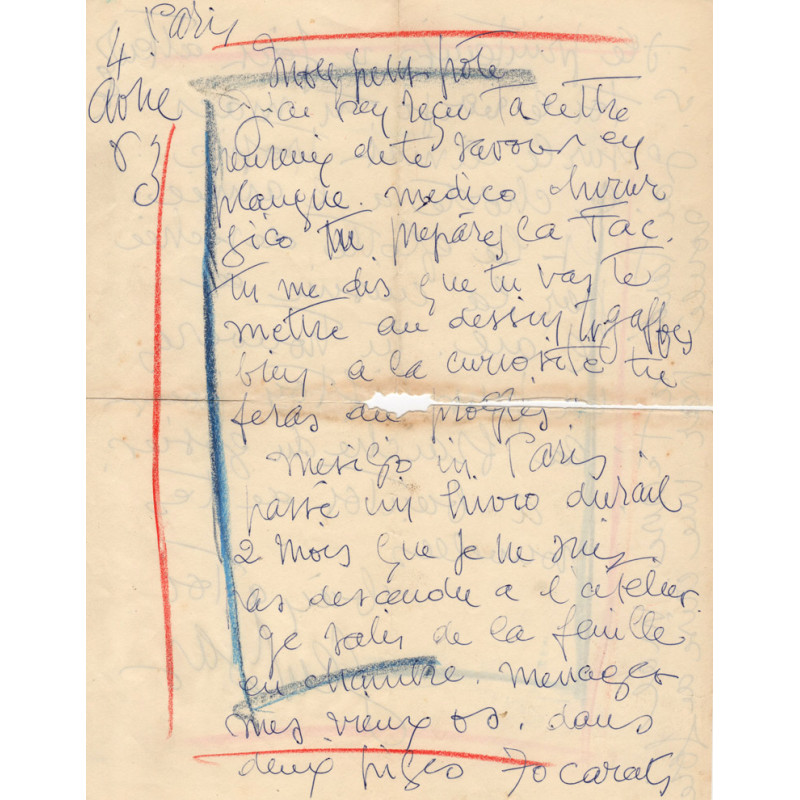 Paris
4
63
Mon petit pote
J'ai bien reçu ta lettre
de te savoir en
planque. medico chirur
gico tu prépares la Fac.
tu me dis que tu vas te
mettre au dessin tu gaffes
bien a la curiosité tu
feras du progrès
in Paris
passé un hivro durail
2 mois que je ne suis
pas descendu a l'atelier
Je salis de la feuille
en chambre. menager
mes vieux os. dans
deux piges 70 carats